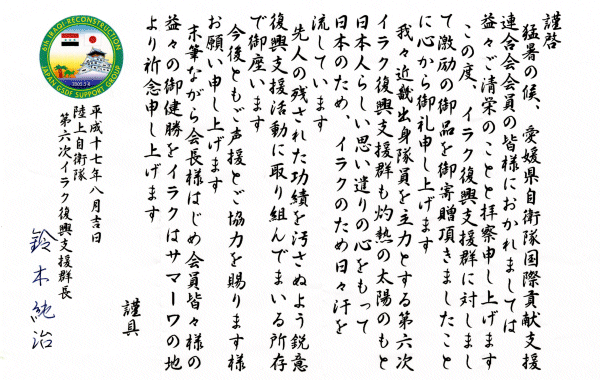 謹啓
猛暑の候、愛媛県自衛隊国際貢献支援
連合会会員の皆様におかれましては
益々ご清栄のことと拝察申し上げます
この度、イラク復興支援群に対しまし
て激励の御品を御寄贈頂きましたこと
に心から御礼申し上げます
我々近畿出身隊員を主力とする第六次
イラク復興支援群も灼熱の太陽のもと
日本人らしい思い遣りの心をもって
日本のため、イラクのため日々汗を
流しています
先人の残された功績を汚さぬよう鋭意
復興支援活動に取り組んでまいる所存
で御座います
今後ともご声援とご協力を賜ります様
お願い申し上げます
末筆ながら会長様はじめ会員皆々様の
益々の御健勝をイラクはサマーワの地
より祈念申し上げます
謹具
平成十七年八月吉日
陸上自衛隊
第六次イラク復興支援群長
鈴木純治
6th IRAQ-RECONSTRUCTION
JAPAN GSDF SUPPORT GROUP